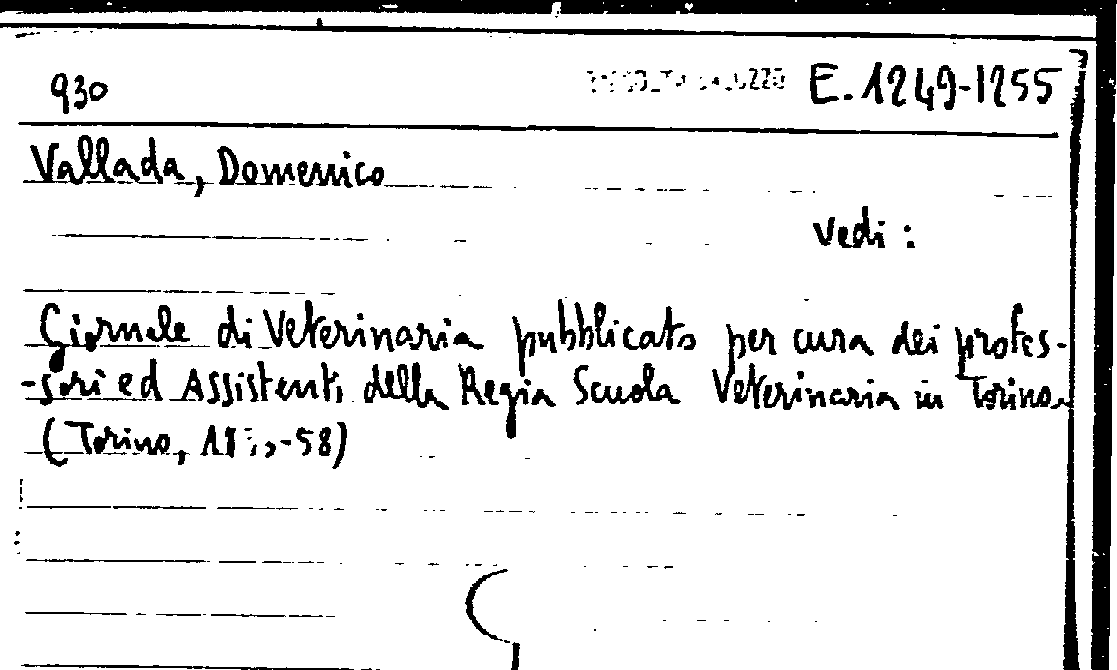 930 E.1249-1255
Vallada, Domenico
Vedi :
Giornale di Veterinaria pubblicato per cura dei profes-
-sori ed Assistenti della Regia Scuola Veterinaria in Torino.
(Torino, -58)